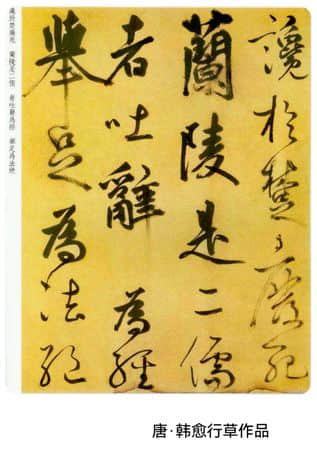 讒於楚廢死
蘭陵是二儒
者吐辭為經
舉足為法絕
讒於楚廢死 蘭陵是二儒 者吐辭為經 舉足為法絕
唐·韩愈行草作品